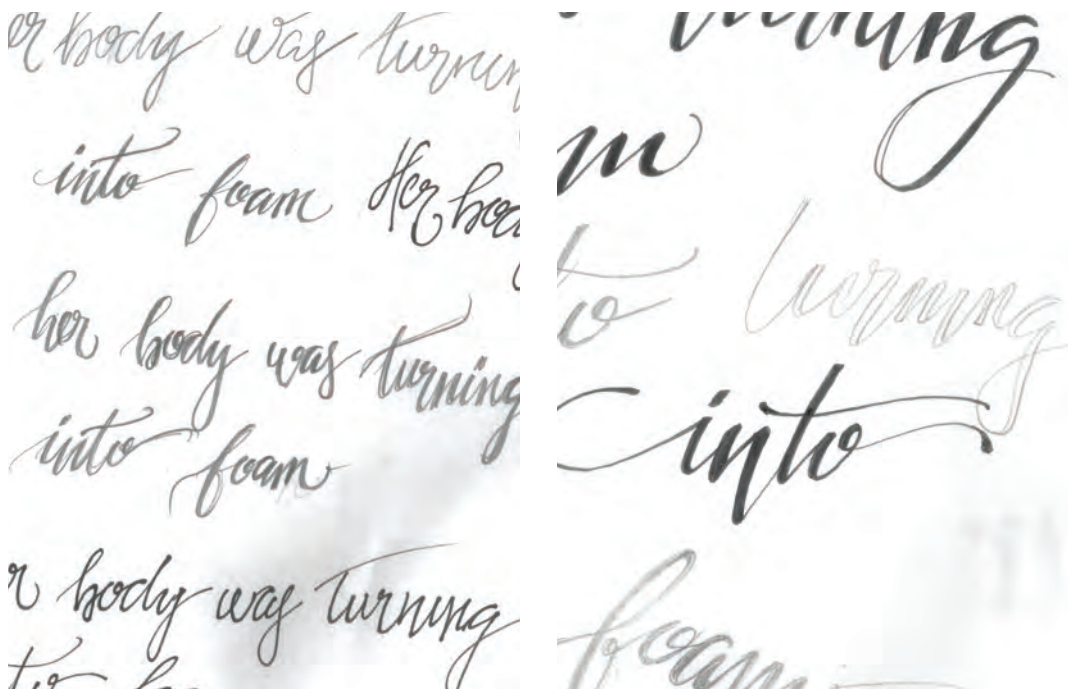 er body was turnin
into foam Her bod
her body was turning
into foam
r body was turning
to fo
turning
m
to turning
into
foam